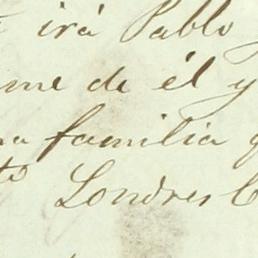 irá Pablo
me de él y
a familia
to Londres